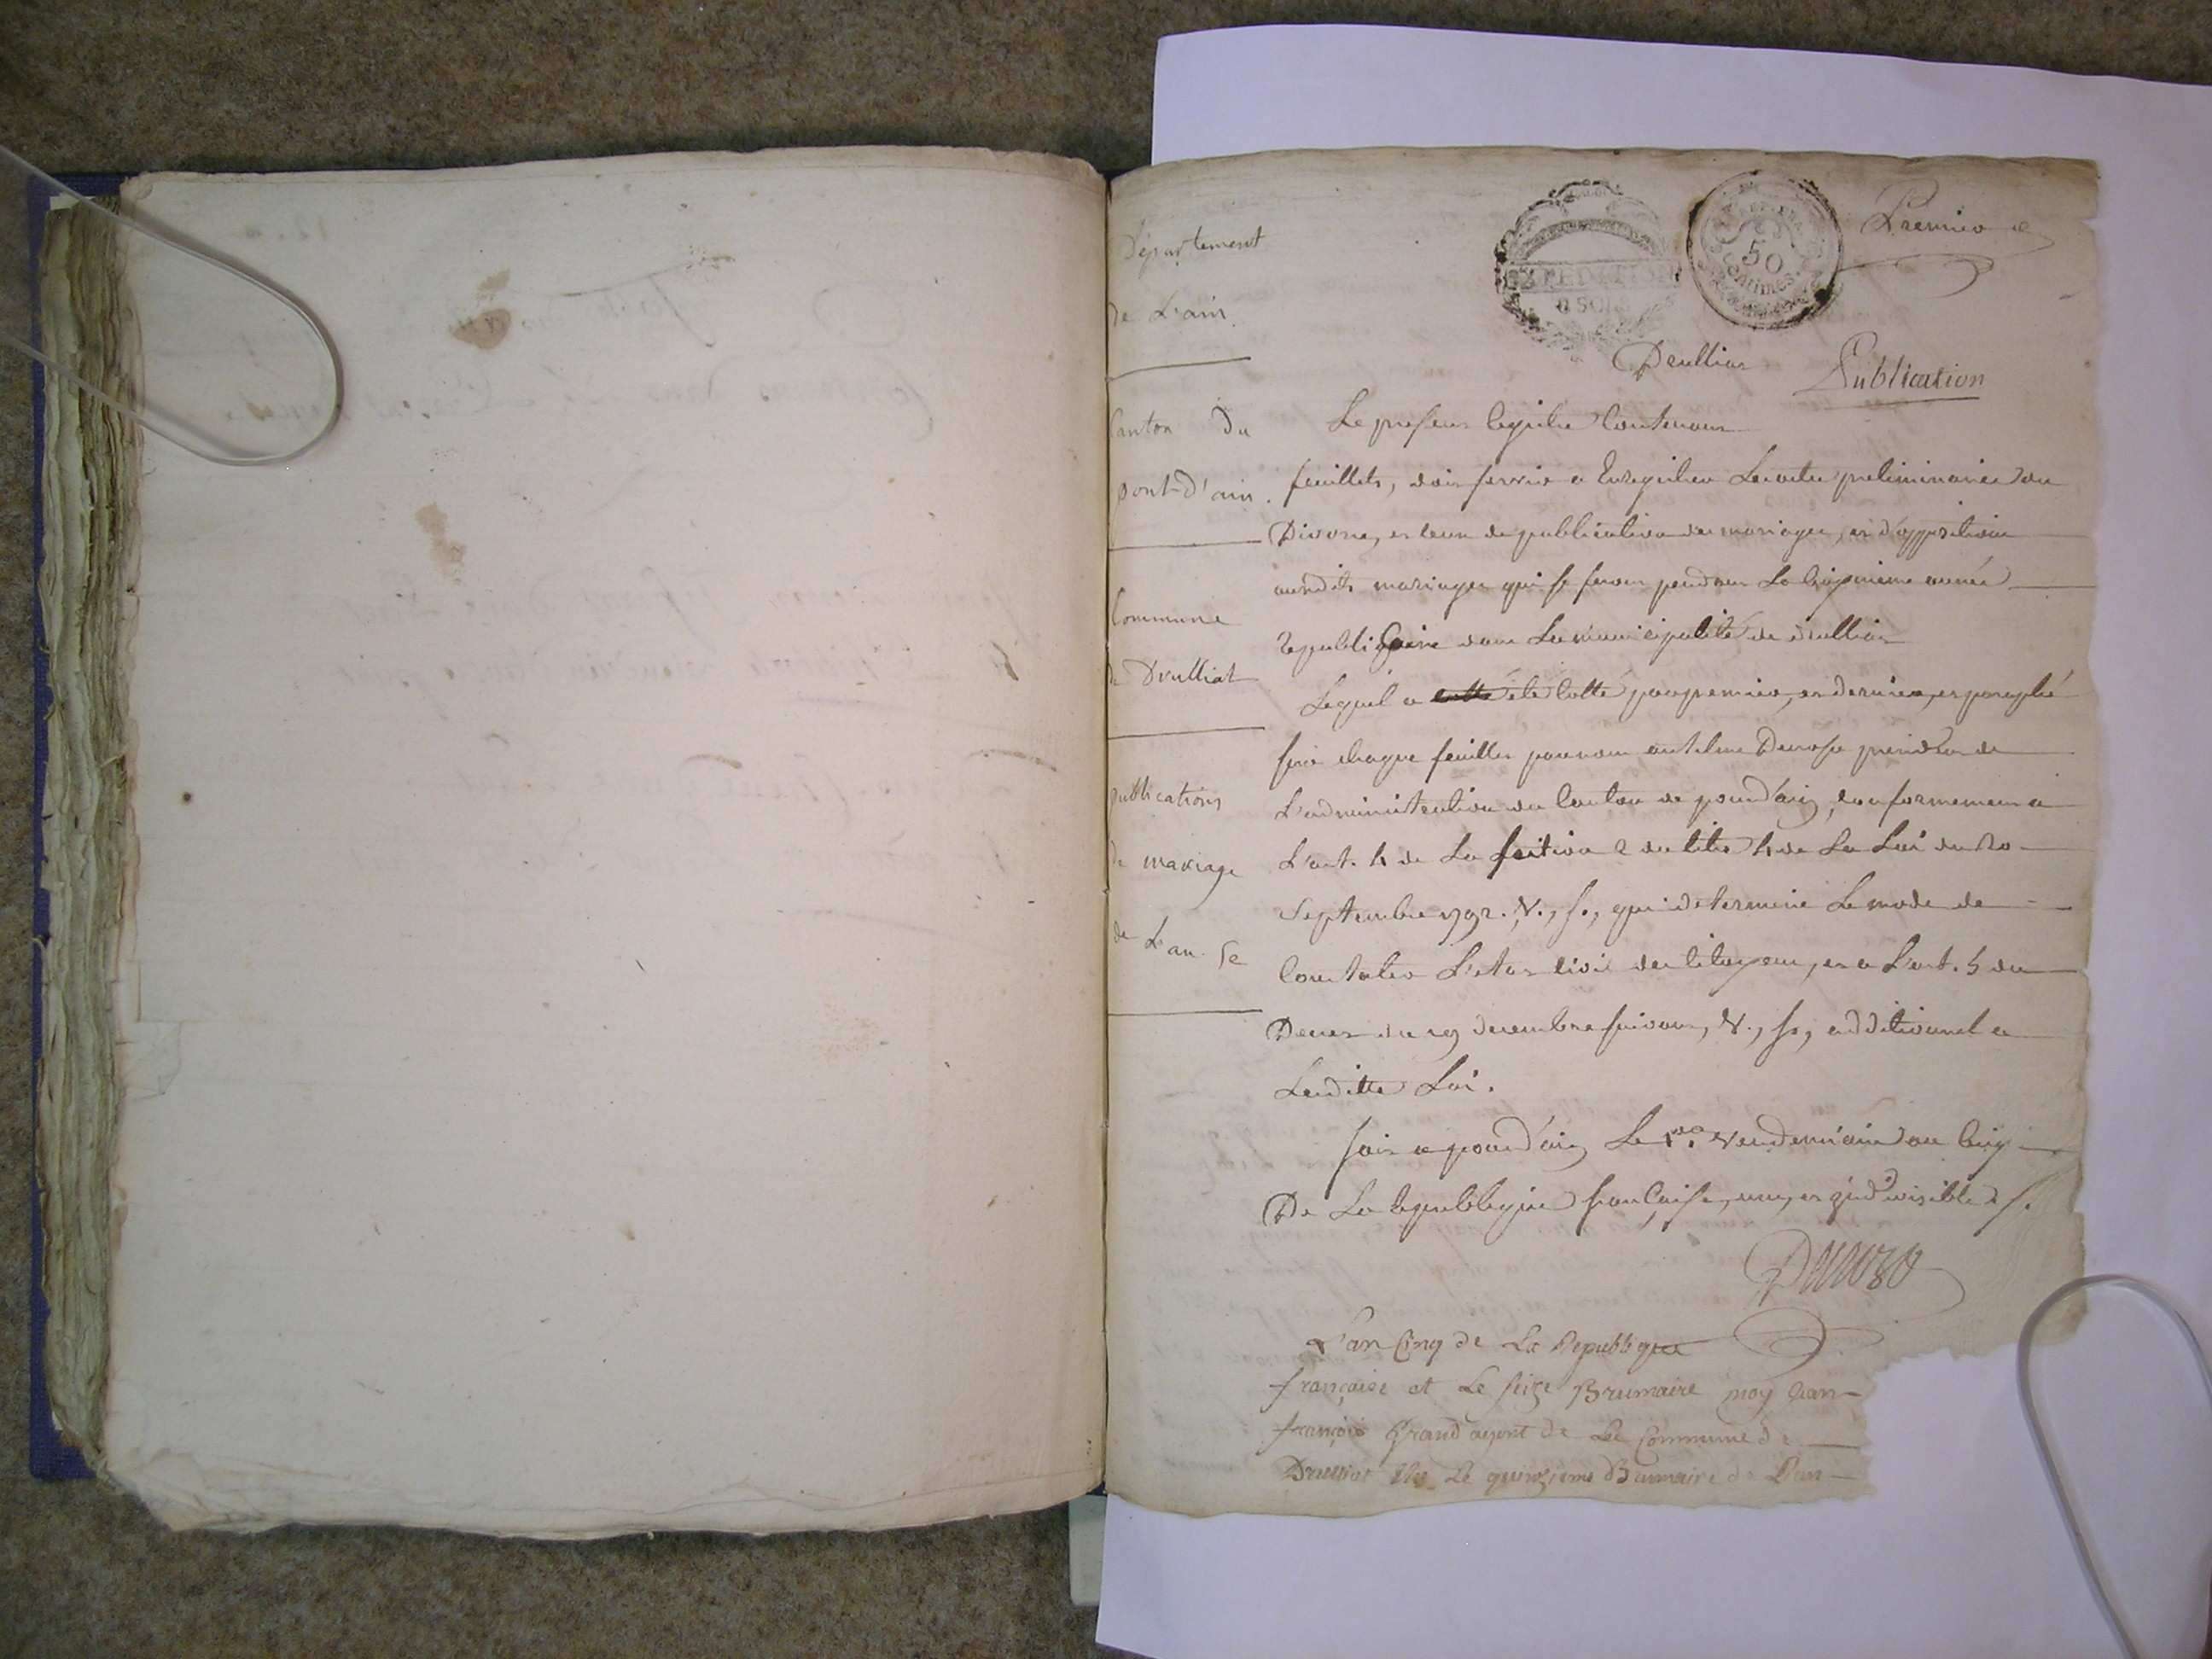 Département
de L'ain
Canton du
pont-d'ain.
Commune
de Drulliat
publications
de mariage
de L'an 5e
EXPEDITION
50
centimes
Premier
Drulliat
Publication
Le present registre Contenant
feuillets, doit servir a Enregistrer Les actes preliminaires du
Divorce, et ceux de publication des mariages, et d'opposition
auxdits mariages qui se feront pendant La Cinquieme année
republicaine dans La municipalité de drulliat
Lequel a été Cotté par premier, et dernier, et paraphé
sur chaque feuillet par nous antelme Duroza president de
L'administration du Canton de pond'ain, conformement a
L'art. 4 de La section 2 du titre 4 de La Loi du 20
Septembre 1792. V., s., qui determine Le mode de
Constater L'etat civil des Citoyens, et a L'art. 5 du
Decret du 19 decembre suivant, V., s., additionnel a
Laditte Loi.
fait a pond'ain Le 1er. Vendemiaire an Cinq
De La republique française, une, et indivisible
L'an Cinq de La Republique
française et Le seize Brumaire moy Jean
françois Grand agent de La Commune de
Drulliat Le quinzieme Brumaire de L'an